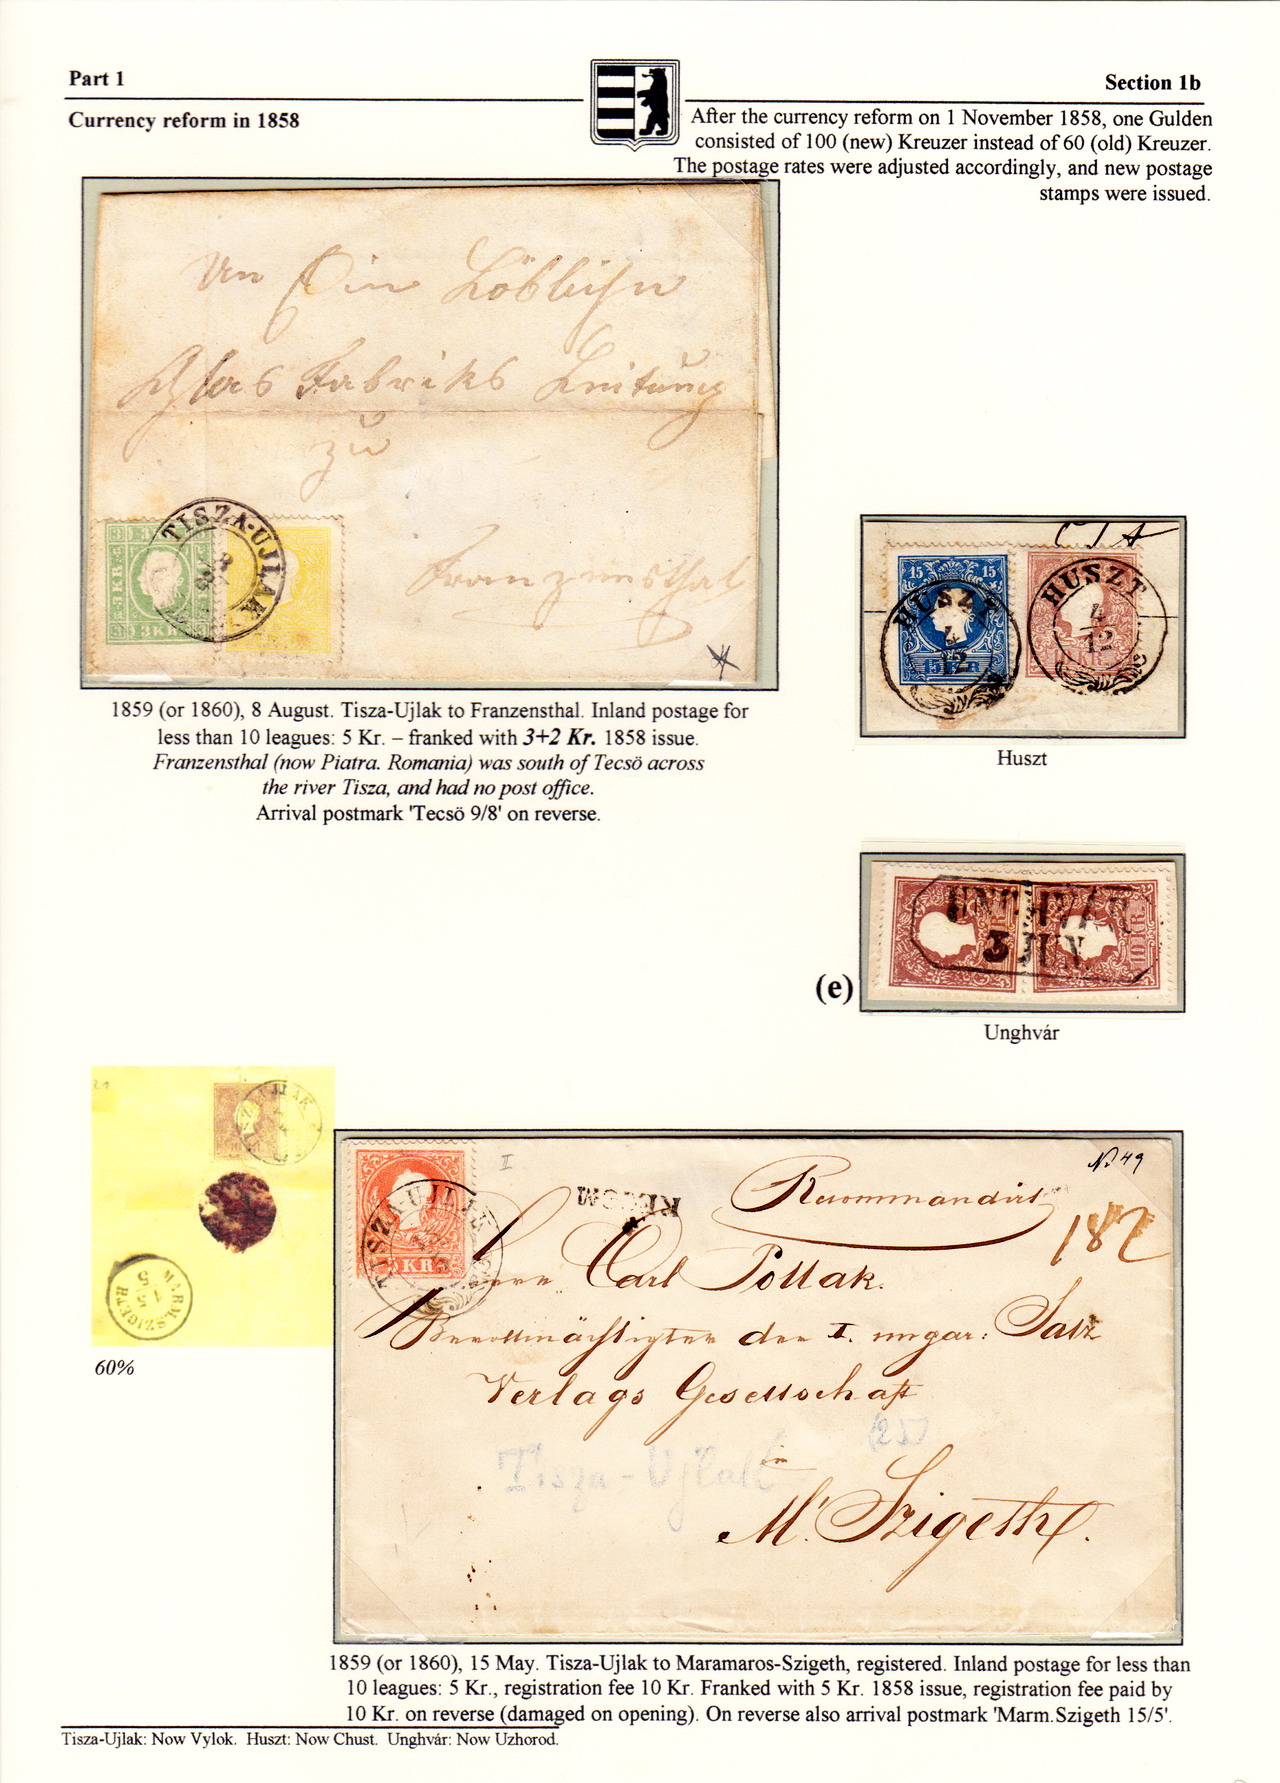 Part 1
Section 1b
Currency reform in 1858
After the currency reform on 1 November 1858, one Gulden
consisted of 100 (new) Kreuzer instead of 60 (old) Kreuzer.
The postage rates were adjusted accordingly, and new postage
stamps were issued.
Löblichen
Glas Fabriks Leitung
zu
Franzensthal
TISZA-UJLAK
3 KR
3 KR.
1859 (or 1860), 8 August. Tisza-Ujlak to Franzensthal. Inland postage for
less than 10 leagues: 5 Kr. – franked with 3+2 Kr. 1858 issue.
Franzensthal (now Piatra. Romania) was south of Tecsö across
the river Tisza, and had no post office.
Arrival postmark 'Tecsö 9/8' on reverse.
15 15
15 KR
HUSZT
4
12
HUSZT
4
12
Huszt
UNGHVÁR
3 JUN.
10 KR
(e)
Unghvár
MARM.SZIGETH
15
5
60%
TISZA-UJLAK
5 KR
II
RECOM
Recommandirt
N 49
182
Herrn Carl Pollak.
Bevollmächtigter der I. ungar: Salz
Verlags Gesellschaft
(25)
Tisza-Ujlak
in
M. Szigeth.
1859 (or 1860), 15 May. Tisza-Ujlak to Maramaros-Szigeth, registered. Inland postage for less than
10 leagues: 5 Kr., registration fee 10 Kr. Franked with 5 Kr. 1858 issue, registration fee paid by
10 Kr. on reverse (damaged on opening). On reverse also arrival postmark 'Marm.Szigeth 15/5'.
Tisza-Ujlak: Now Vylok. Huszt: Now Chust. Unghvár: Now Uzhorod.